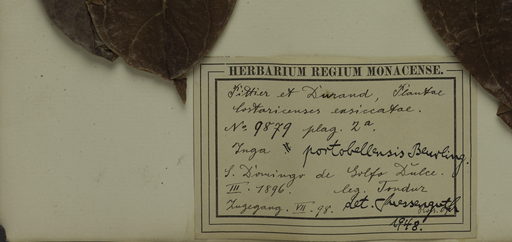 HERBARIUM REGIUM MONACENSE.
Pittier et Durand, Plantae
Costaricenses exsiccatae.
No 9879 plag. 2a.
Inga portobellensis Beurling.
S. Domingo de Golfo Dulce.
III. 1896. leg. Tonduz
Zugegang. VII. 98. det.
1948.